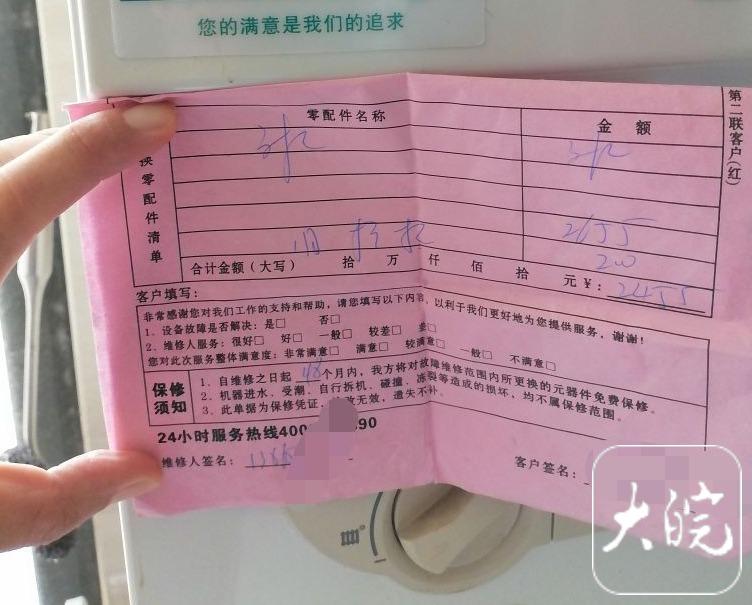 您的满意是我们的追求
第二联客户(红)
换零配件清单
零配件名称 金额
旧 折 2655
200
合计金额(大写) 拾 万 仟 佰 拾 元¥: 2455
客户填写:
非常感谢您对我们工作的支持和帮助,请您填写以下内容,以利于我们更好地为您提供服务,谢谢!
1、设备故障是否解决:是□ 否□
2、维修人服务:很好□ 好□ 一般□ 较差□ 差□
您对此次服务整体满意度:非常满意□ 满意□ 较满意□ 一般□ 不满意□
保修须知
1、自维修之日起 个月内,我方将对故障维修范围内所更换的元器件免费保修。
2、机器进水、受潮、自行拆机、碰撞、冻裂等造成的损坏,均不属保修范围。
3、此单据为保修凭证,改无效,遗失不补。
24小时服务热线400 90
维修人签名:
客户签名:
大皖